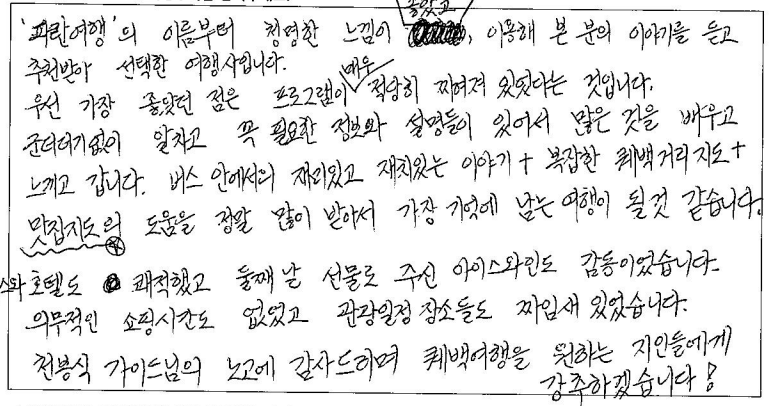 '파란여행'의 이름부터 청명한 느낌이 좋았고, 이용해 본 분의 이야기를 듣고
추천받아 선택한 여행사입니다.
우선 가장 좋았던 점은 프로그램이 매우 적당히 짜여져 있었다는 것입니다.
군더더기없이 알차고 꼭 필요한 정보와 설명들이 있어서 많은 것을 배우고
느끼고 갑니다. 버스 안에서의 재미있고 재치있는 이야기 + 복잡한 퀘백 거리 지도 +
맛집지도의 도움을 정말 많이 받아서 가장 기억에 남는 여행이 될 것 같습니다.
호텔도 쾌적했고 둘째날 선물로 주신 아이스와인도 감동이었습니다.
의무적인 쇼핑시간도 없었고 관광일정 장소들도 짜임새 있었습니다.
천봉식 가이드님의 노고에 감사드리며 퀘백여행을 원하는 지인들에게
강추하겠습니다!